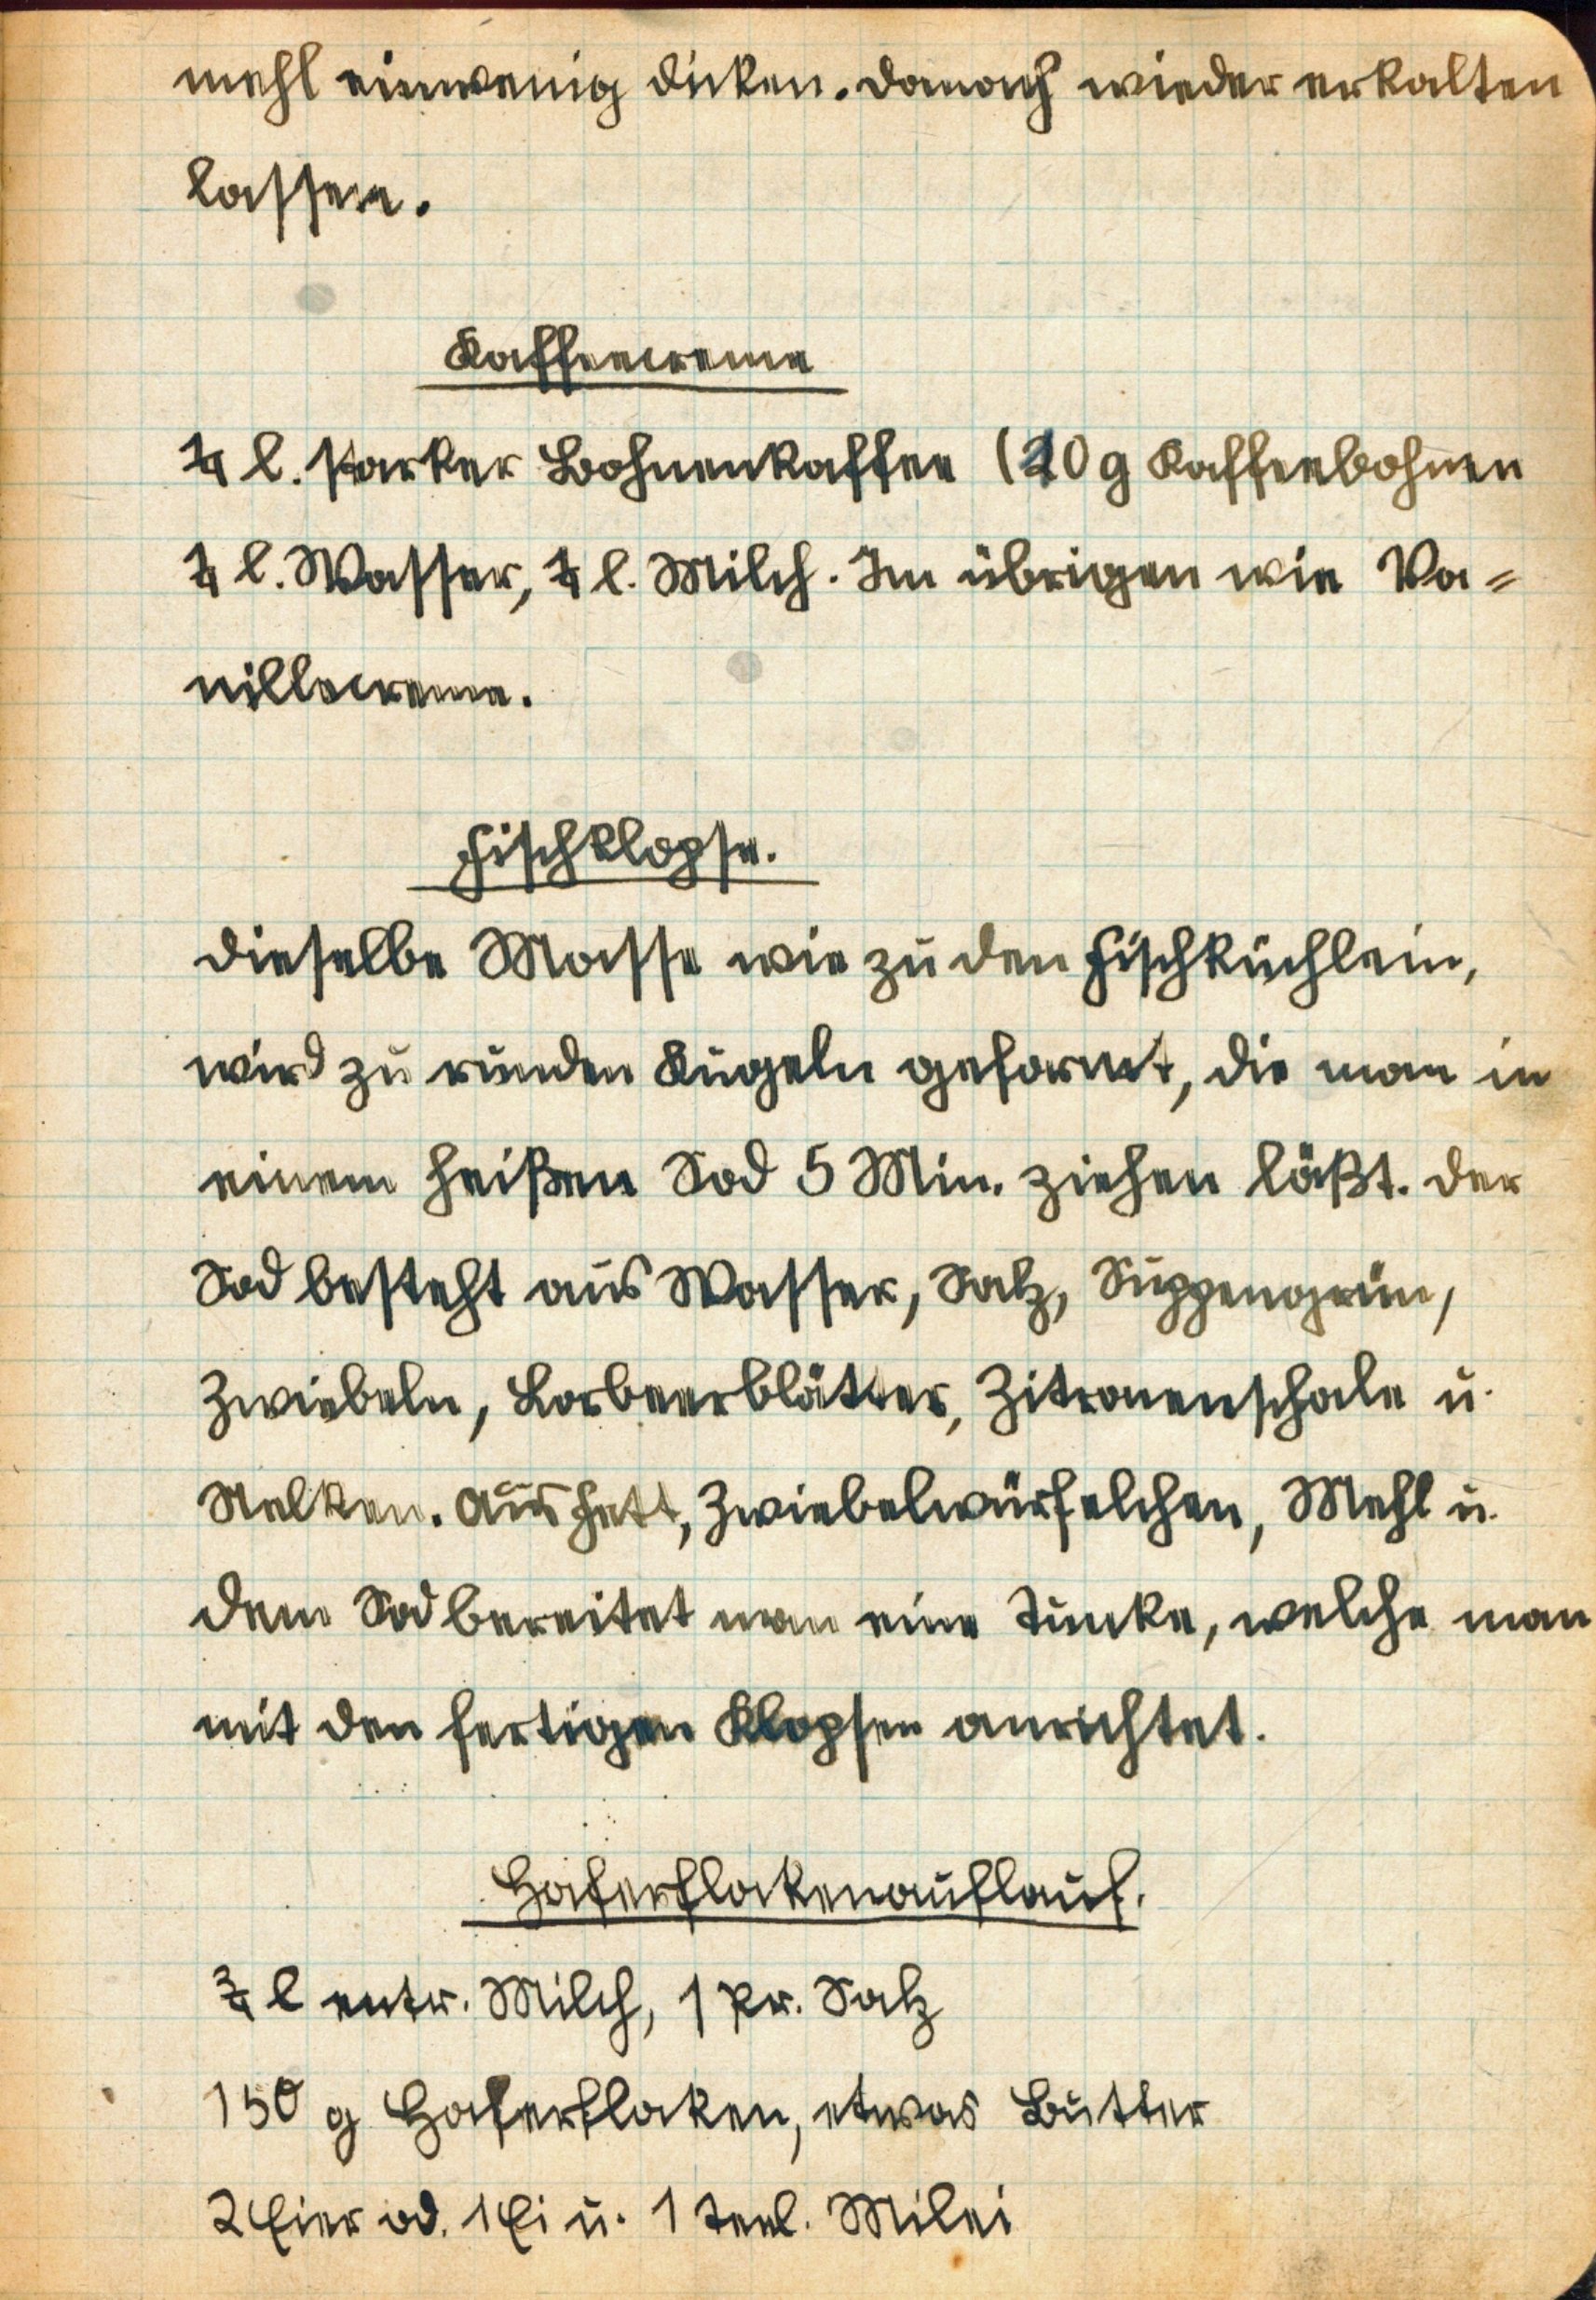 mehl einwenig dicken. Danach wieder erkalten
lassen.
Kaffeecreme
¼ l. starker Bohnenkaffee (20 g Kaffeebohnen
¼ l. Wasser, ¼ l. Milch. Im übrigen wie Va=
nillecreme.
Fischklopse.
Dieselbe Masse wie zu den Fischküchlein,
wird zu runden Kugeln geformt, die man in
einem heißen Sod 5 Min. ziehen läßt. Der
Sod besteht aus Wasser, Salz, Suppengrün,
Zwiebeln, Lorbeerblätter, Zitronenschale u.
Nelken. Aus Fett, Zwiebelwürfelchen, Mehl u.
dem Sod bereitet man eine Tunke, welche man
mit den fertigen Klopsen anrichtet.
Haferflockenauflauf.
¾ l entr. Milch, 1 Pr. Salz
150 g Haferflocken, etwas Butter
2 Eier od. 1 Ei u. 1 Teel. Milei